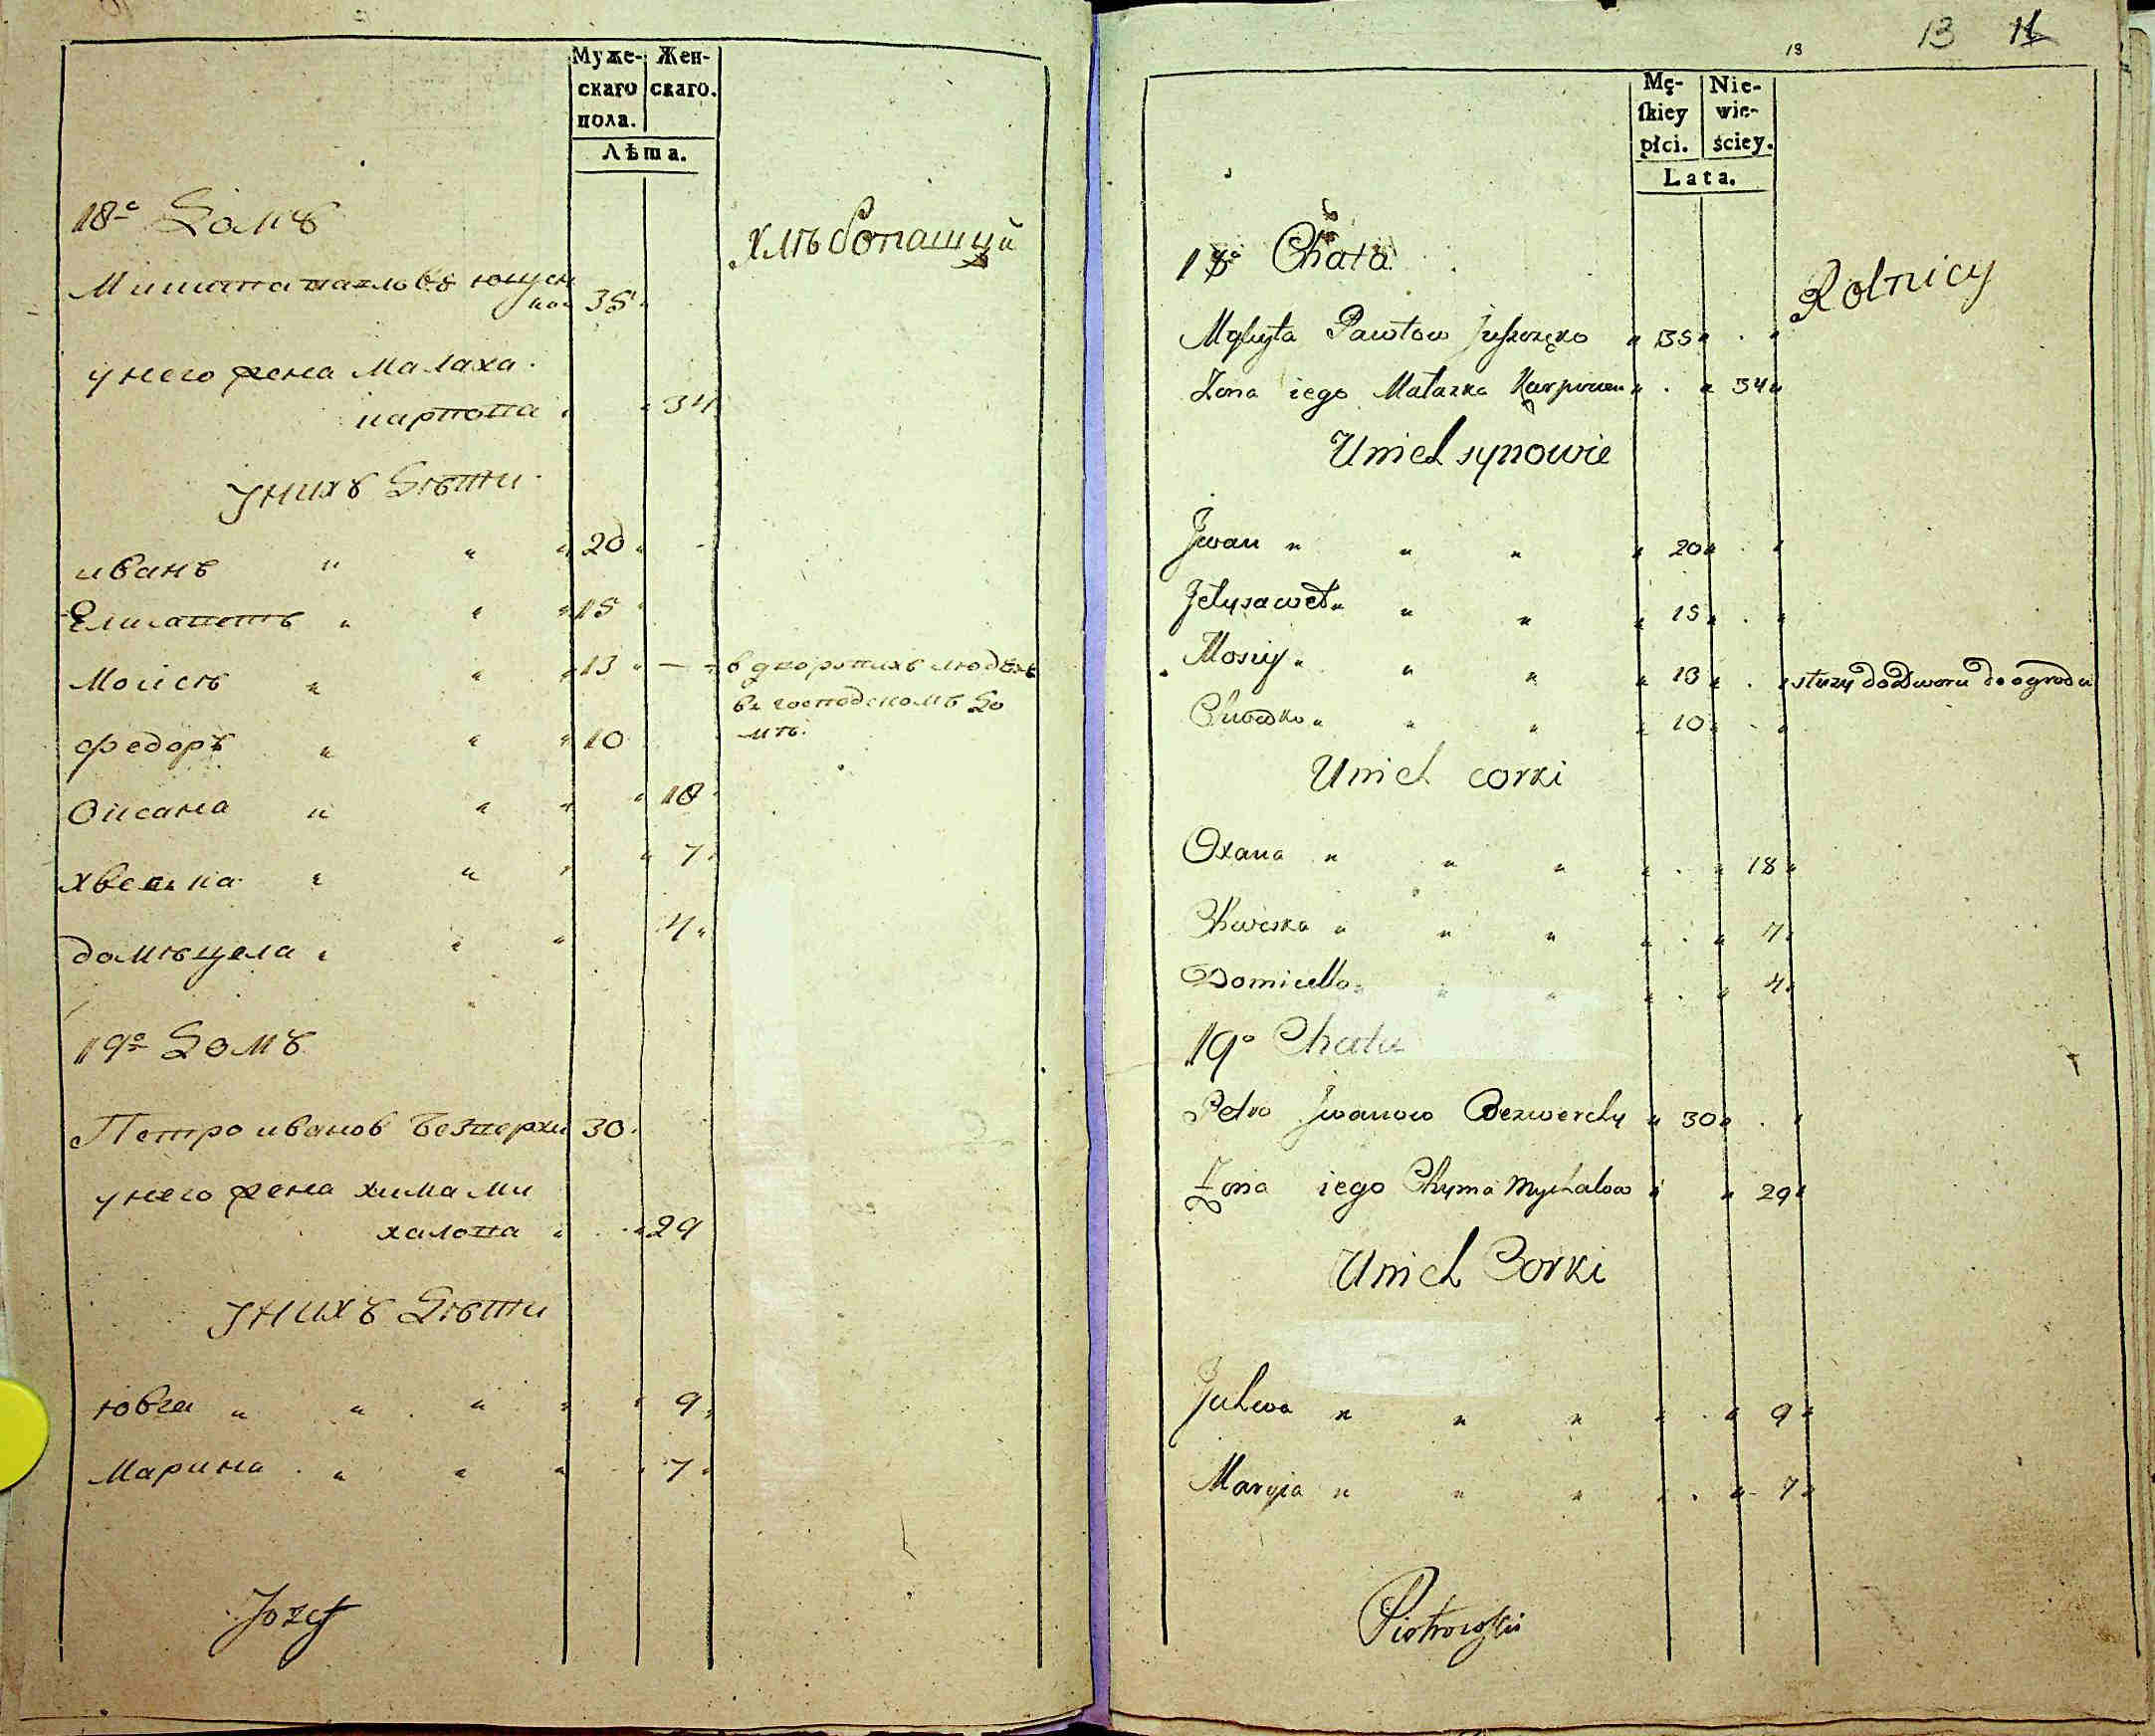 Муже-
скаго
пола.
Жен-
скаго.
Лѣта.
18е Домъ
хлѣбопашцы
Микита павловъ ющен
ко 35
у него жена Малаха
карпова 34
У нихъ Дѣти
иванъ " " " 20
Елисаветъ " " " 15
Моисѣ " " " 13 — в дворовихъ людехъ
в господскомъ До
мѣ.
федоръ " " " 10
Оксана " " " 18
хвеска " " " 7
домѣцела " " " 4
19е Домъ
Петро иванов безверхи 30
у него жена хима Ми
халова " 29
У нихъ Дѣти
ювга " " " 9
Марина " " " 7
Jozef
13 11
13
Mę-
ſkiey
płci.
Nie-
wie-
ściey.
Lata.
18° Chata
Rolnicy
Mykyta Pawłow Juszczęko " 35 "
Zona iego Małazka Karpowa " . " 34 "
U nich synowie
Jwan " " " " 20 "
Jełysawet " " " 15 "
Mosiy " " " 13 " słuzy do Dworu do ogrodu
Chwedko " " " 10 "
U nich corki
Oxana " " " " 18 "
Chweska " " " " 7 "
Domicella " " " " 4 "
19° Chata
Petro Jwanow Bezwerchy " 30 "
Zona iego Chyma Mychałowa " " 29 "
U nich Corki
Juhwa " " " " 9 "
Maryia " " " " 7 "
Piotrowski